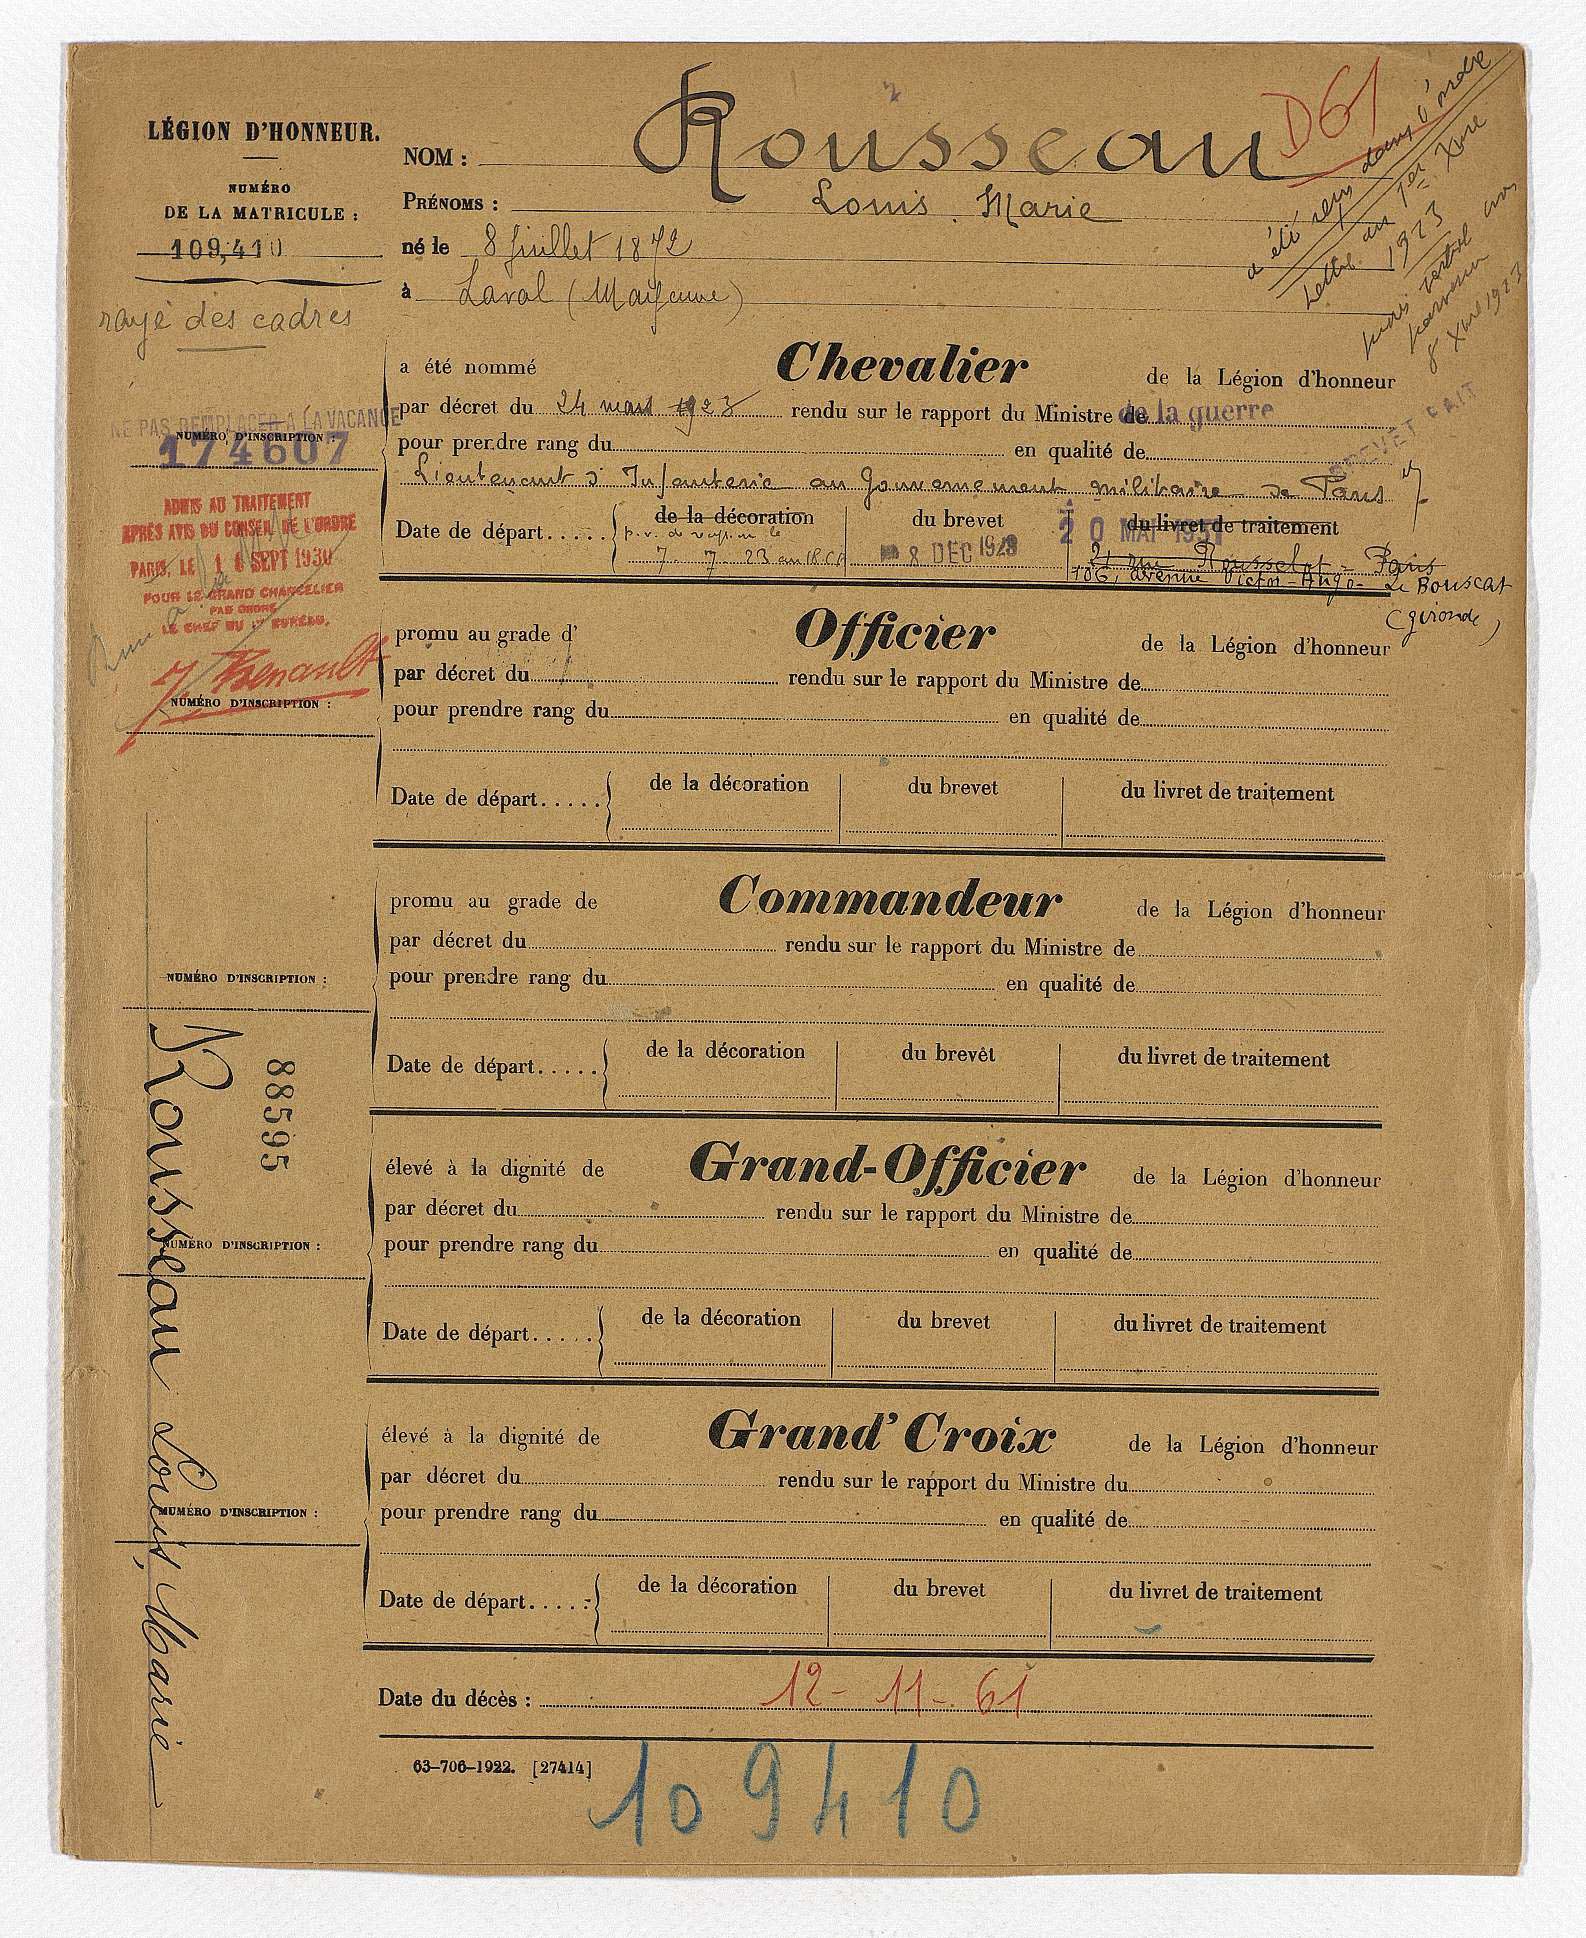 LÉGION D'HONNEUR.
NUMÉRO
DE LA MATRICULE :
109,410
rayé des cadres
NOM : Rousseau
D61
PRÉNOMS : Louis Marie
né le 8 Juillet 1872
à Laval (Mayenne)
a été reçu dans l'ordre
Lettre du 1er Xbre
1923
procès verbal
parvenu
8 Xbre 1923
a été nommé Chevalier de la Légion d'honneur
par décret du 24 mars 1923 rendu sur le rapport du Ministre de de la guerre
pour prendre rang du en qualité de
BREVET FAIT
Lieutenant d'Infanterie au Gouvernement militaire de Paris
NE PAS REMPLACER A LA VACANCE
NUMÉRO D'INSCRIPTION :
174607
Date de départ..... de la décoration du brevet du livret de traitement
p.v. de
7 - 7 - 23
8 DEC 1923
20 MAI 1931
21 rue Rousselot - Paris
186, avenue Victor-Hugo - Le Bouscat
(Gironde)
ADMIS AU TRAITEMENT
APRÈS AVIS DU CONSEIL DE L'ORDRE
PARIS, LE 1 8 SEPT 1930
POUR LE GRAND CHANCELIER
PAR ORDRE
LE CHEF DU 1er BUREAU,
Renault
promu au grade d' Officier de la Légion d'honneur
par décret du rendu sur le rapport du Ministre de
NUMÉRO D'INSCRIPTION :
pour prendre rang du en qualité de
Date de départ..... de la décoration du brevet du livret de traitement
promu au grade de Commandeur de la Légion d'honneur
par décret du rendu sur le rapport du Ministre de
NUMÉRO D'INSCRIPTION :
pour prendre rang du en qualité de
Date de départ..... de la décoration du brevet du livret de traitement
88595
Rousseau Louis, Marie
élevé à la dignité de Grand-Officier de la Légion d'honneur
par décret du rendu sur le rapport du Ministre de
NUMÉRO D'INSCRIPTION :
pour prendre rang du en qualité de
Date de départ..... de la décoration du brevet du livret de traitement
élevé à la dignité de Grand'Croix de la Légion d'honneur
par décret du rendu sur le rapport du Ministre du
NUMÉRO D'INSCRIPTION :
pour prendre rang du en qualité de
Date de départ..... de la décoration du brevet du livret de traitement
Date du décès : 12 - 11 - 61
63-706-1922. [27414]
109410